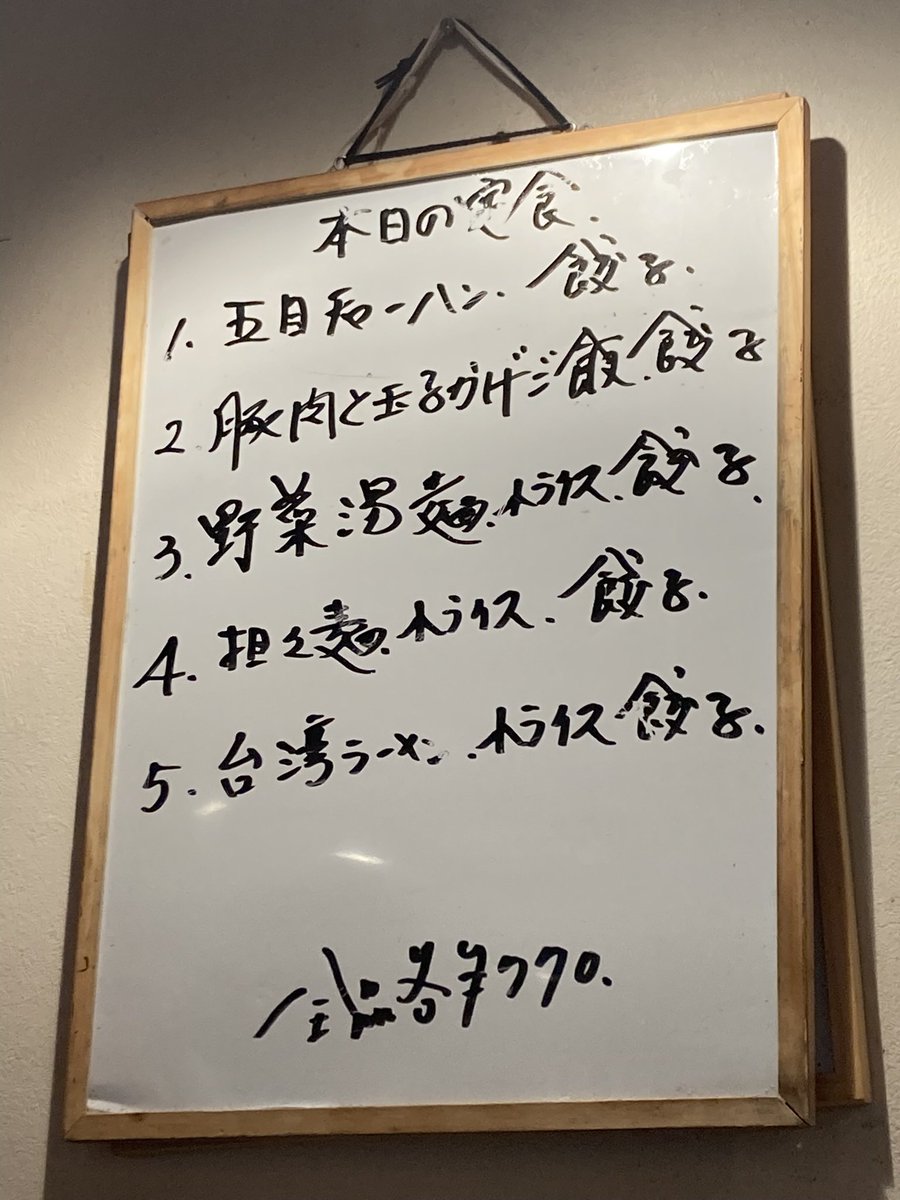 本日の定食.
1. 五目チャーハン. 餃子.
2. 豚肉と玉子かけご飯. 餃子
3. 野菜湯麺. 小ライス. 餃子.
4. 担々麺. 小ライス. 餃子.
5. 台湾ラーメン. 小ライス 餃子.
全品各¥770.